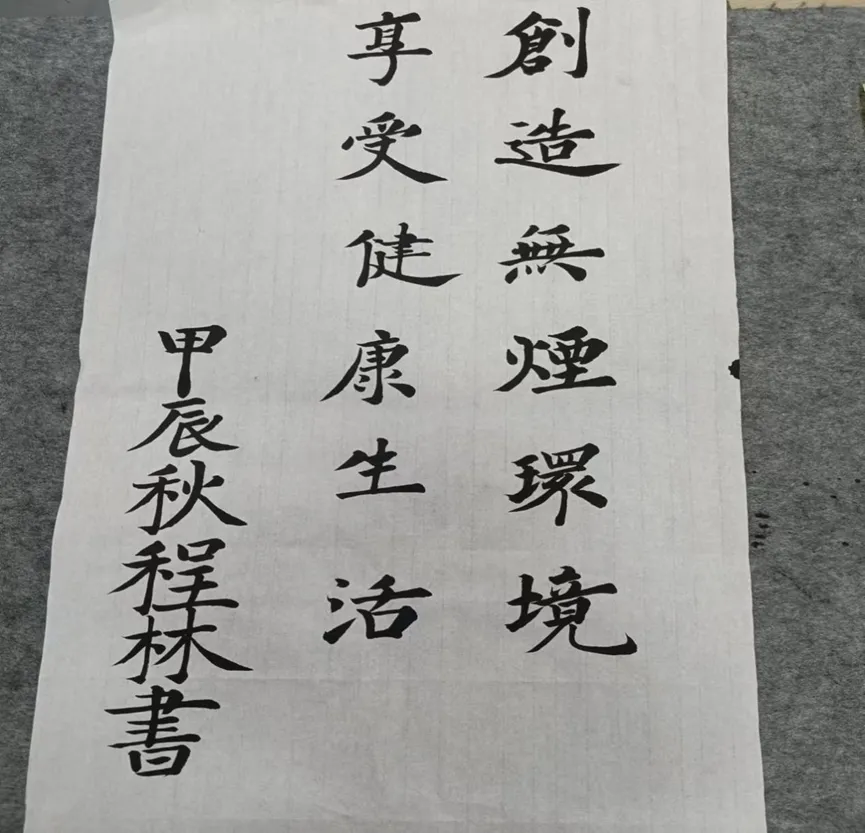 創造無煙環境
享受健康生活
甲辰秋程林書